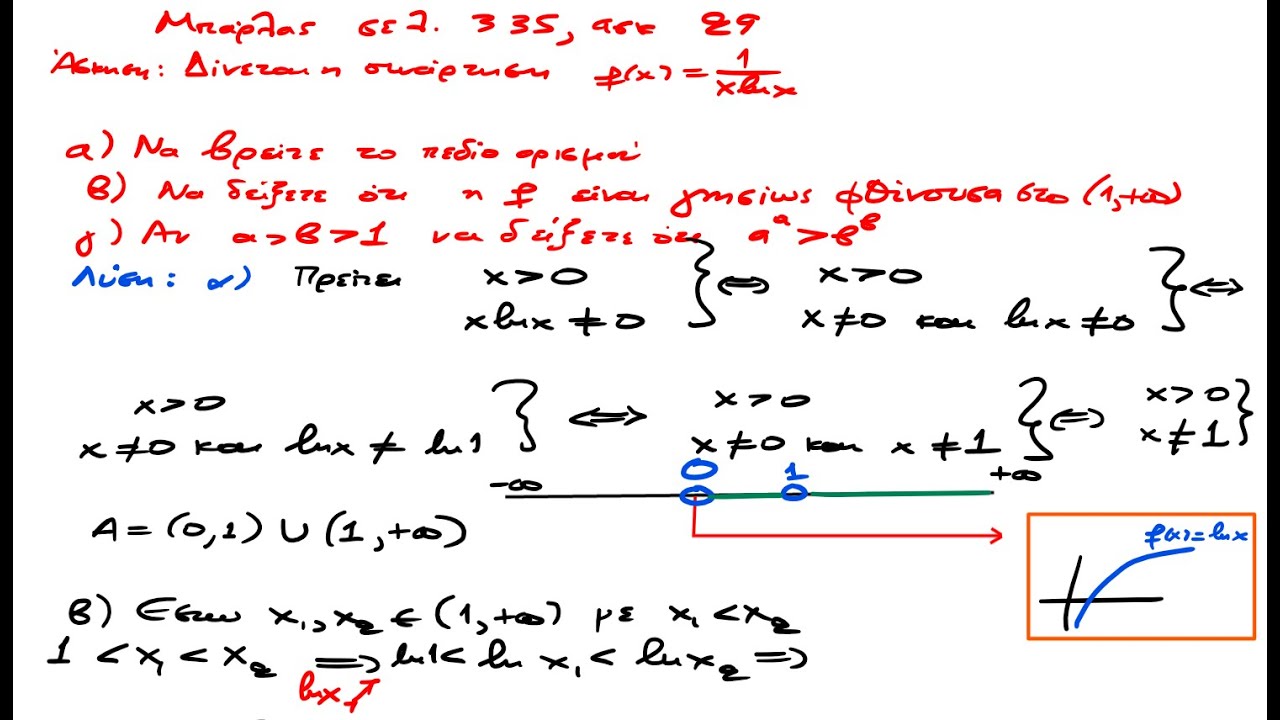 Μπάρλας σελ. 335, ασκ 29
Άσκηση: Δίνεται η συνάρτηση f(x) = 1/(x lnx)
α) Να βρείτε το πεδίο ορισμού
β) Να δείξετε ότι η f είναι γνησίως φθίνουσα στο (1,+∞)
γ) Αν α>β>1 να δείξετε ότι α^α > β^β
Λύση: α) Πρέπει x>0 } ⇔ x>0 } ⇔
x lnx ≠ 0 x≠0 και lnx ≠ 0
x>0 } ⇔ x>0 } ⇔ x>0 }
x≠0 και lnx ≠ ln1 x≠0 και x≠1 x≠1
-∞ 0 1 +∞
A = (0,1) ∪ (1,+∞)
f(x)=lnx
β) Έστω x₁,x₂ ∈ (1,+∞) με x₁ < x₂
1 < x₁ < x₂ ⟹ ln1 < ln x₁ < ln x₂ ⟹
lnx ↗